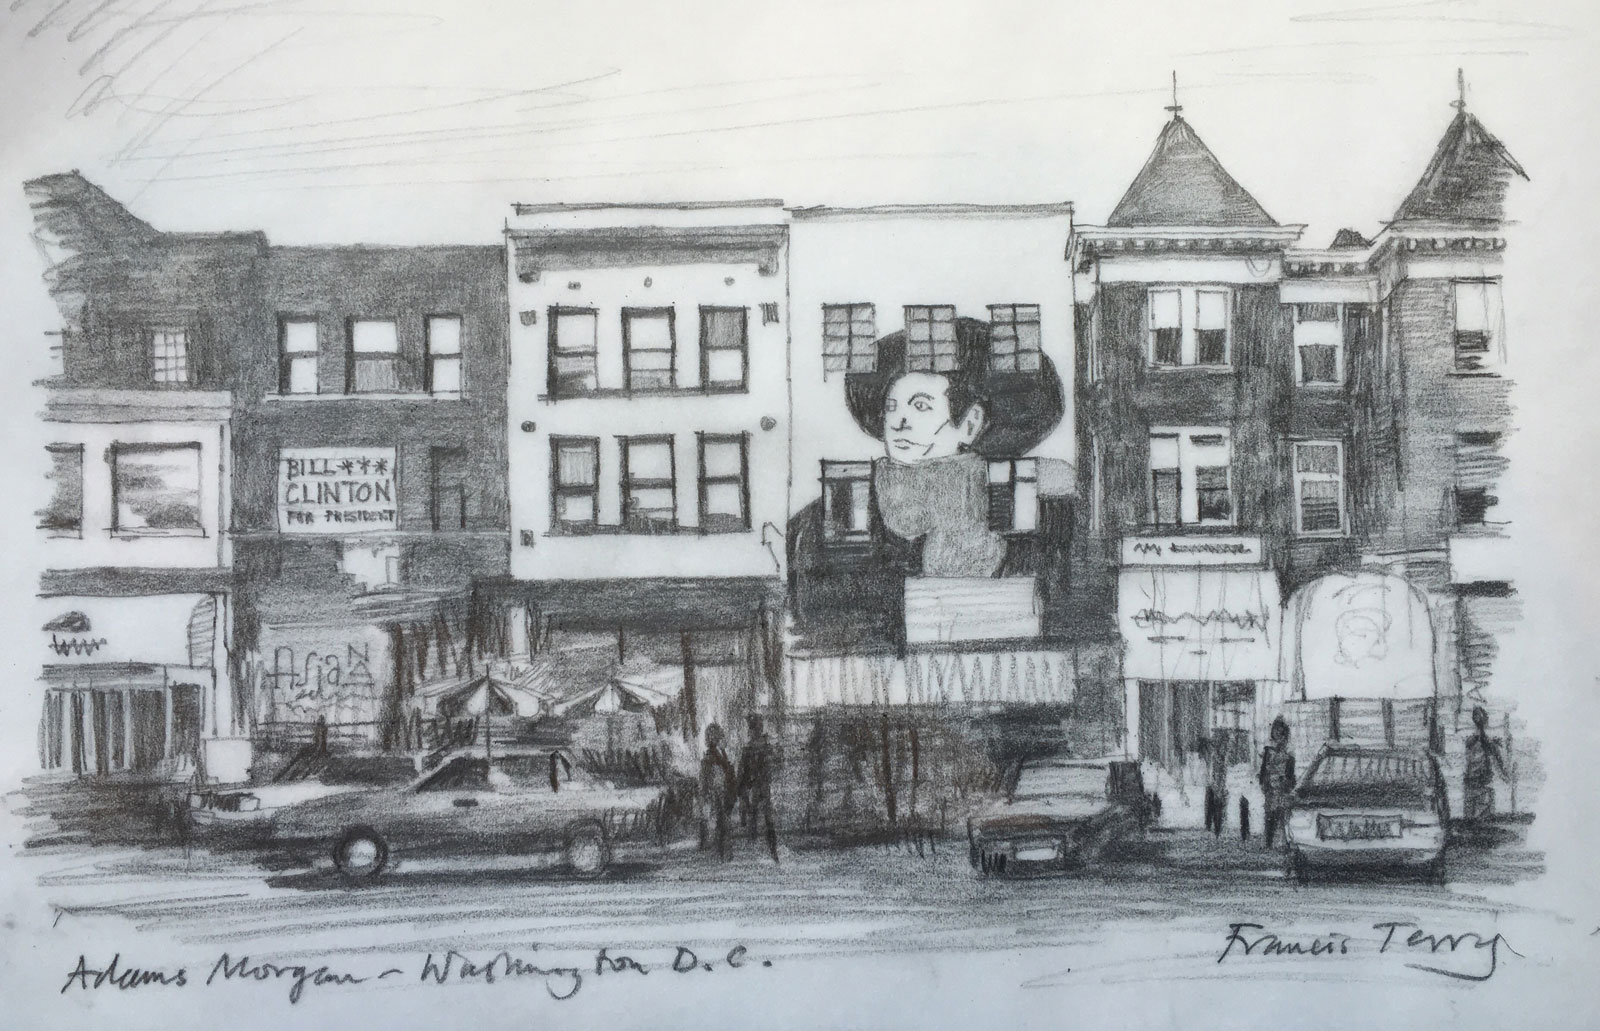 BILL***
CLINTON
FOR PRESIDENT
Asian
Adams Morgan – Washington D.C.
Francis Terry